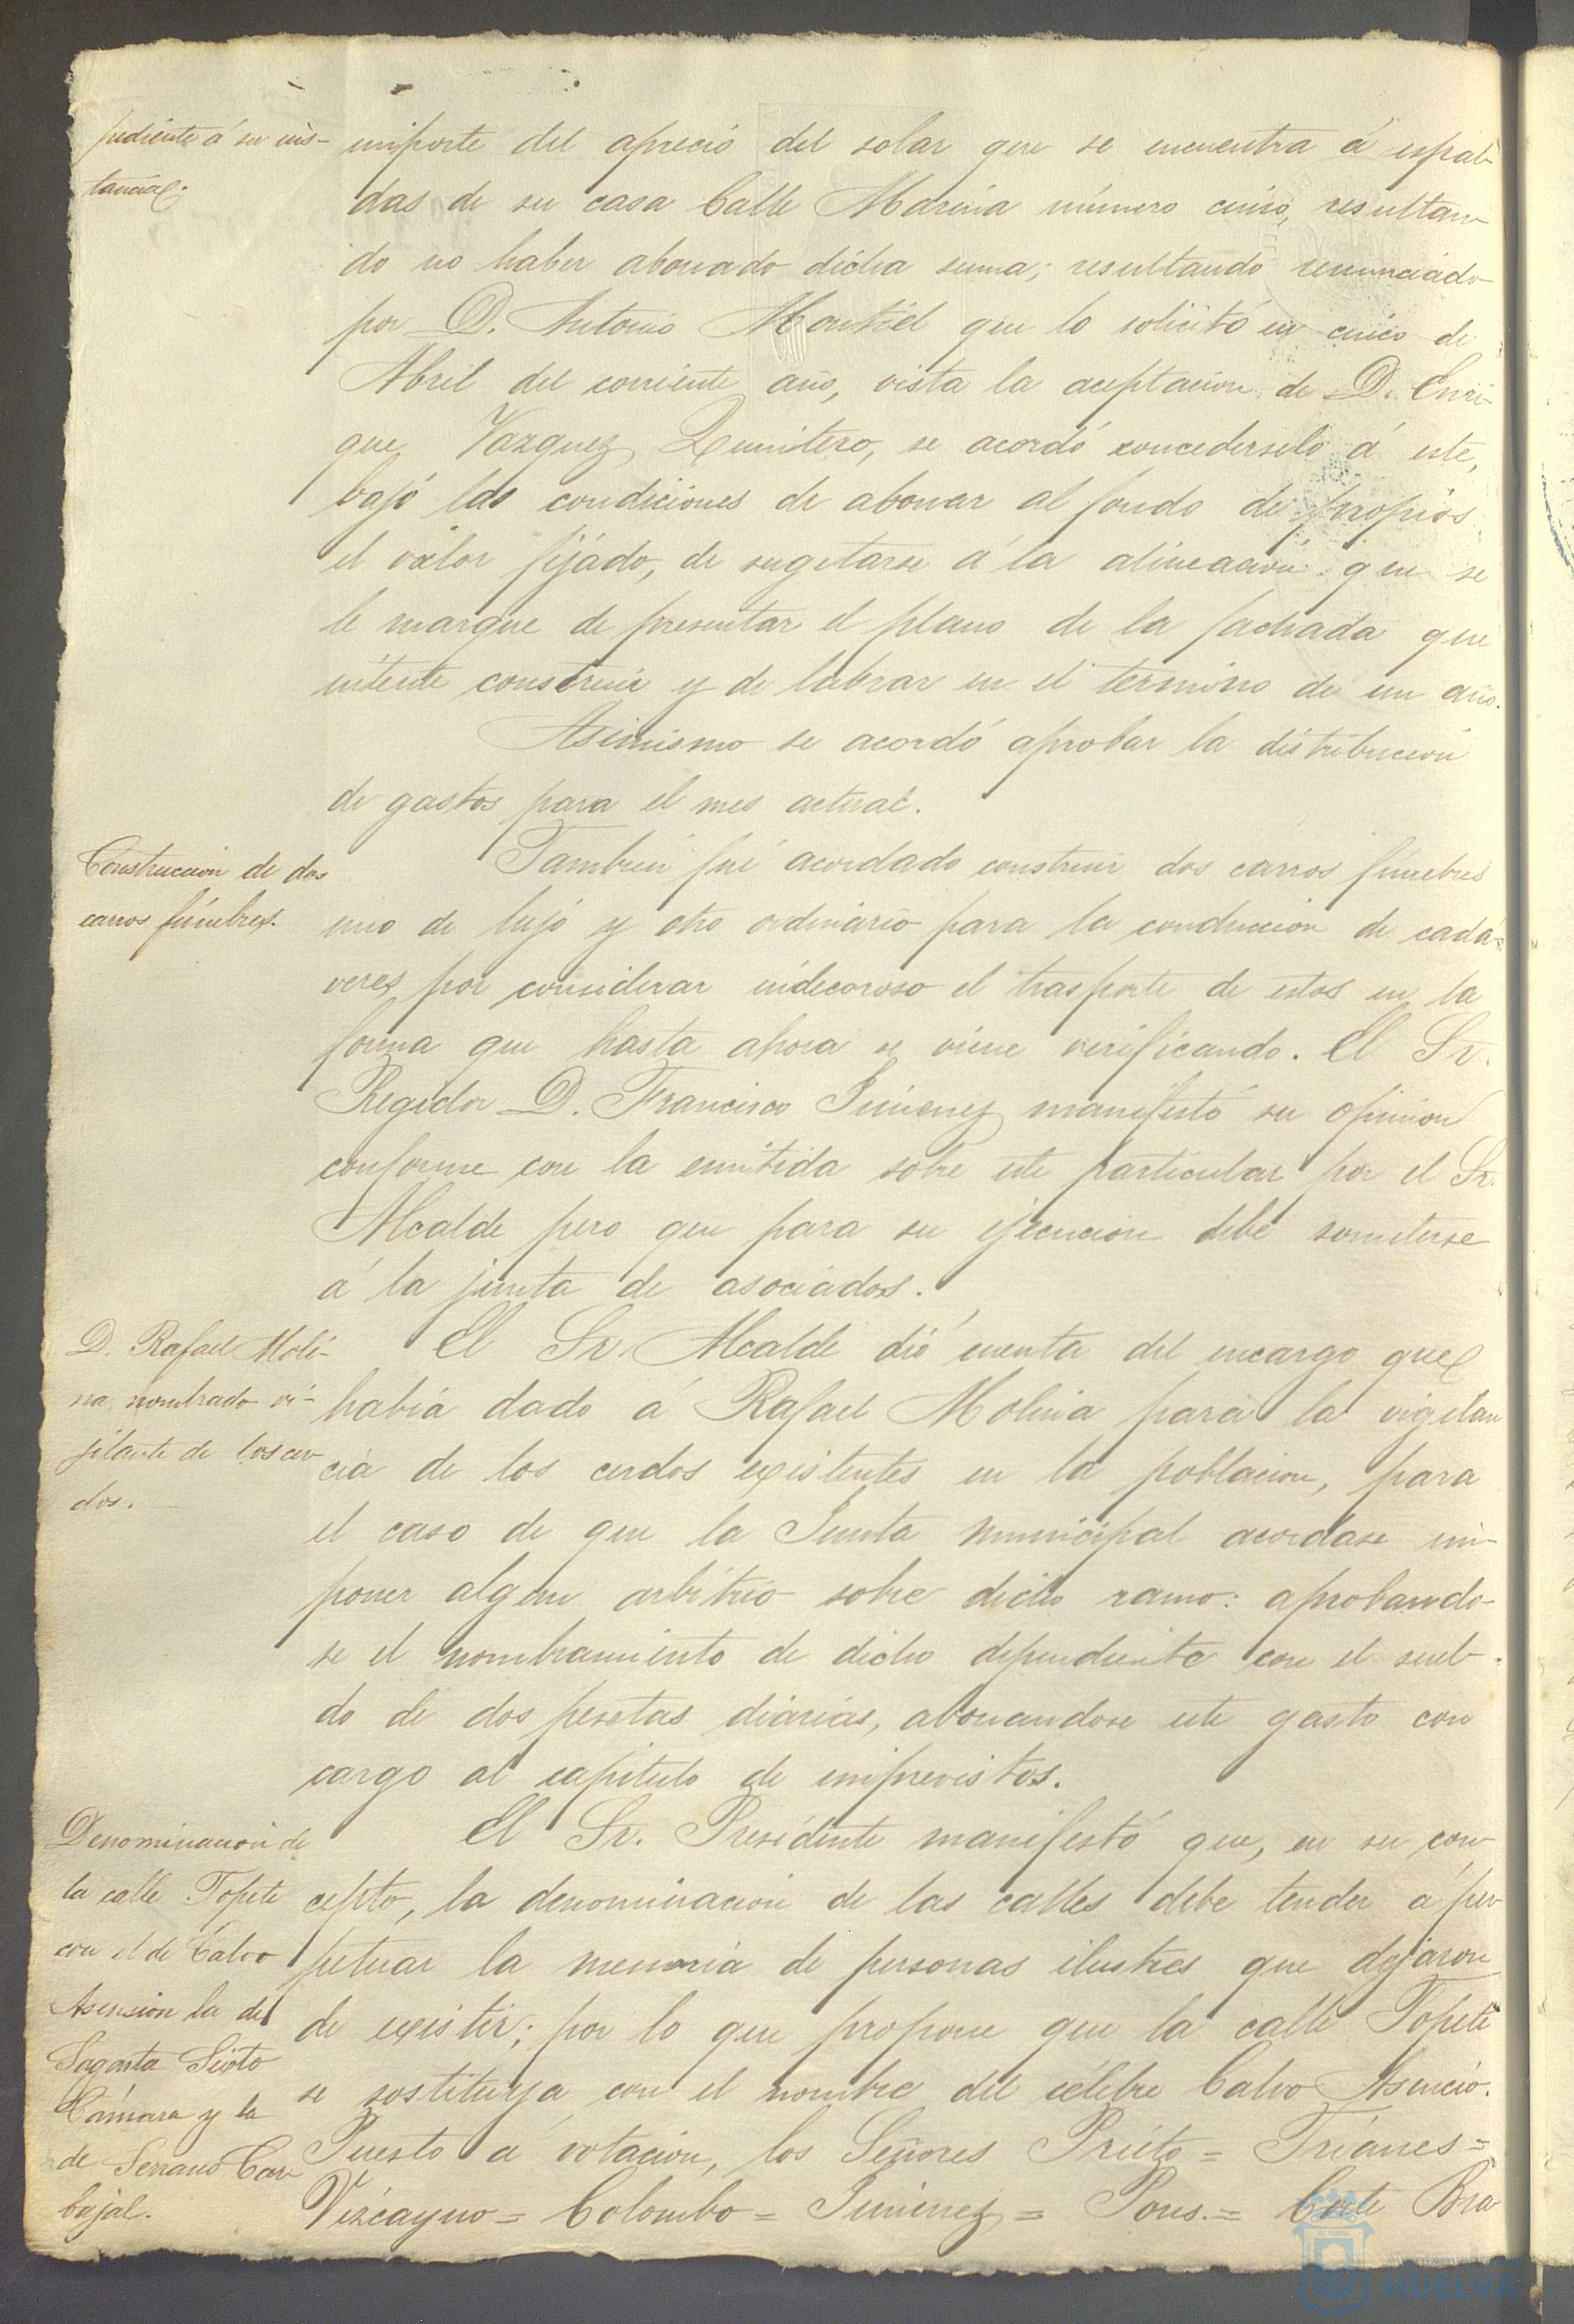 pediente á su ins-
tancia.
importe del aprecio del solar que se encuentra á espal-
das de su casa Calle Marina número cinco, resultan-
do no haber abonado dicha suma; resultando renunciado
por D. Antonio Montiel que lo solicitó en cinco de
Abril del corriente año, vista la aceptacion de D. Enri-
que Vazquez Quintero, se acordó concederselo á este,
bajo las condiciones de abonar al fondo de propios
el valor fijado, de sugetarse á la alineacion que se
le marque de presentar el plano de la fachada que
intente construir y de labrar en el termino de un año.
Asimismo se acordó aprobar la distribucion
de gastos para el mes actual.
Construccion de dos
carros fúnebres.
Tambien fué acordado construir dos carros fúnebres
uno de lujo y otro ordinario para la conduccion de cadá-
veres por considerar indecoroso el trasporte de estos en la
forma que hasta ahora se viene verificando. El Sr.
Regidor D. Francisco Jimenez manifestó su opinion
conforme con la emitida sobre este particular por el Sr.
Alcalde pero que para su ejecucion debe someterse
á la junta de asociados.
D. Rafael Moli-
na nombrado vi-
jilante de los cer
dos.
El Sr. Alcalde dió cuenta del encargo que
habia dado á Rafael Molina para la vigilan
cia de los cerdos existentes en la poblacion, para
el caso de que la Junta municipal acordase im-
poner algun arbitrio sobre dicho ramo: aprobando-
se el nombramiento de dicho dependiente con el suel-
do de dos pesetas diarias, abonandose este gasto con
cargo al capitulo de imprevistos.
Denominacion de
la calle Topete
con el de Calvo
Asension la de
Sagasta Sixto
Cámara y la
de Serrano Car
bajal.
El Sr. Presidente manifestó que, en su con-
cepto, la denominacion de las calles debe tender á per-
petuar la memoria de personas ilustres que dejaron
de existir; por lo que propone que la calle Topete
se sostituya con el nombre del célebre Calvo Asencio.
Puesto á votacion, los Señores Prieto = Trianes =
Vizcayno = Colombo = Jimenez = Pons. = Corte Bra
HUELVA